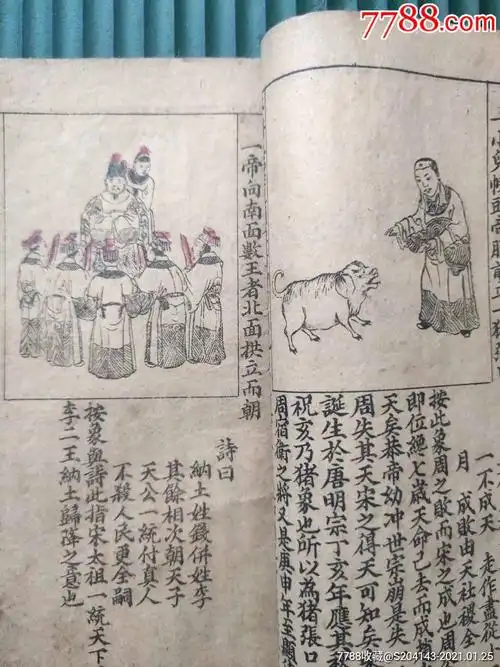 7788.com
一小兒幞頭帝服
一不成天　走作盡從
月　成敗由天社稷全
按此象周之敗而宋之成也周
即位絕七歲天命已去而成
天矣恭帝幼冲世宗崩是失
周失其天宋之得天可知矣
誕生於唐明宗丁亥年應其
祝亥乃猪象也所以為猪張口
周宿衛之將又是庚申年至顯
一帝向南面數王者北面拱立而朝
詩曰
納土姓錢併姓李
其餘相次朝天子
天公一統付真人
不殺人民更全嗣
按象與詩此指宋太祖一統天下
李二王納土歸降之意也
7788收藏@S204143-2021.01.25